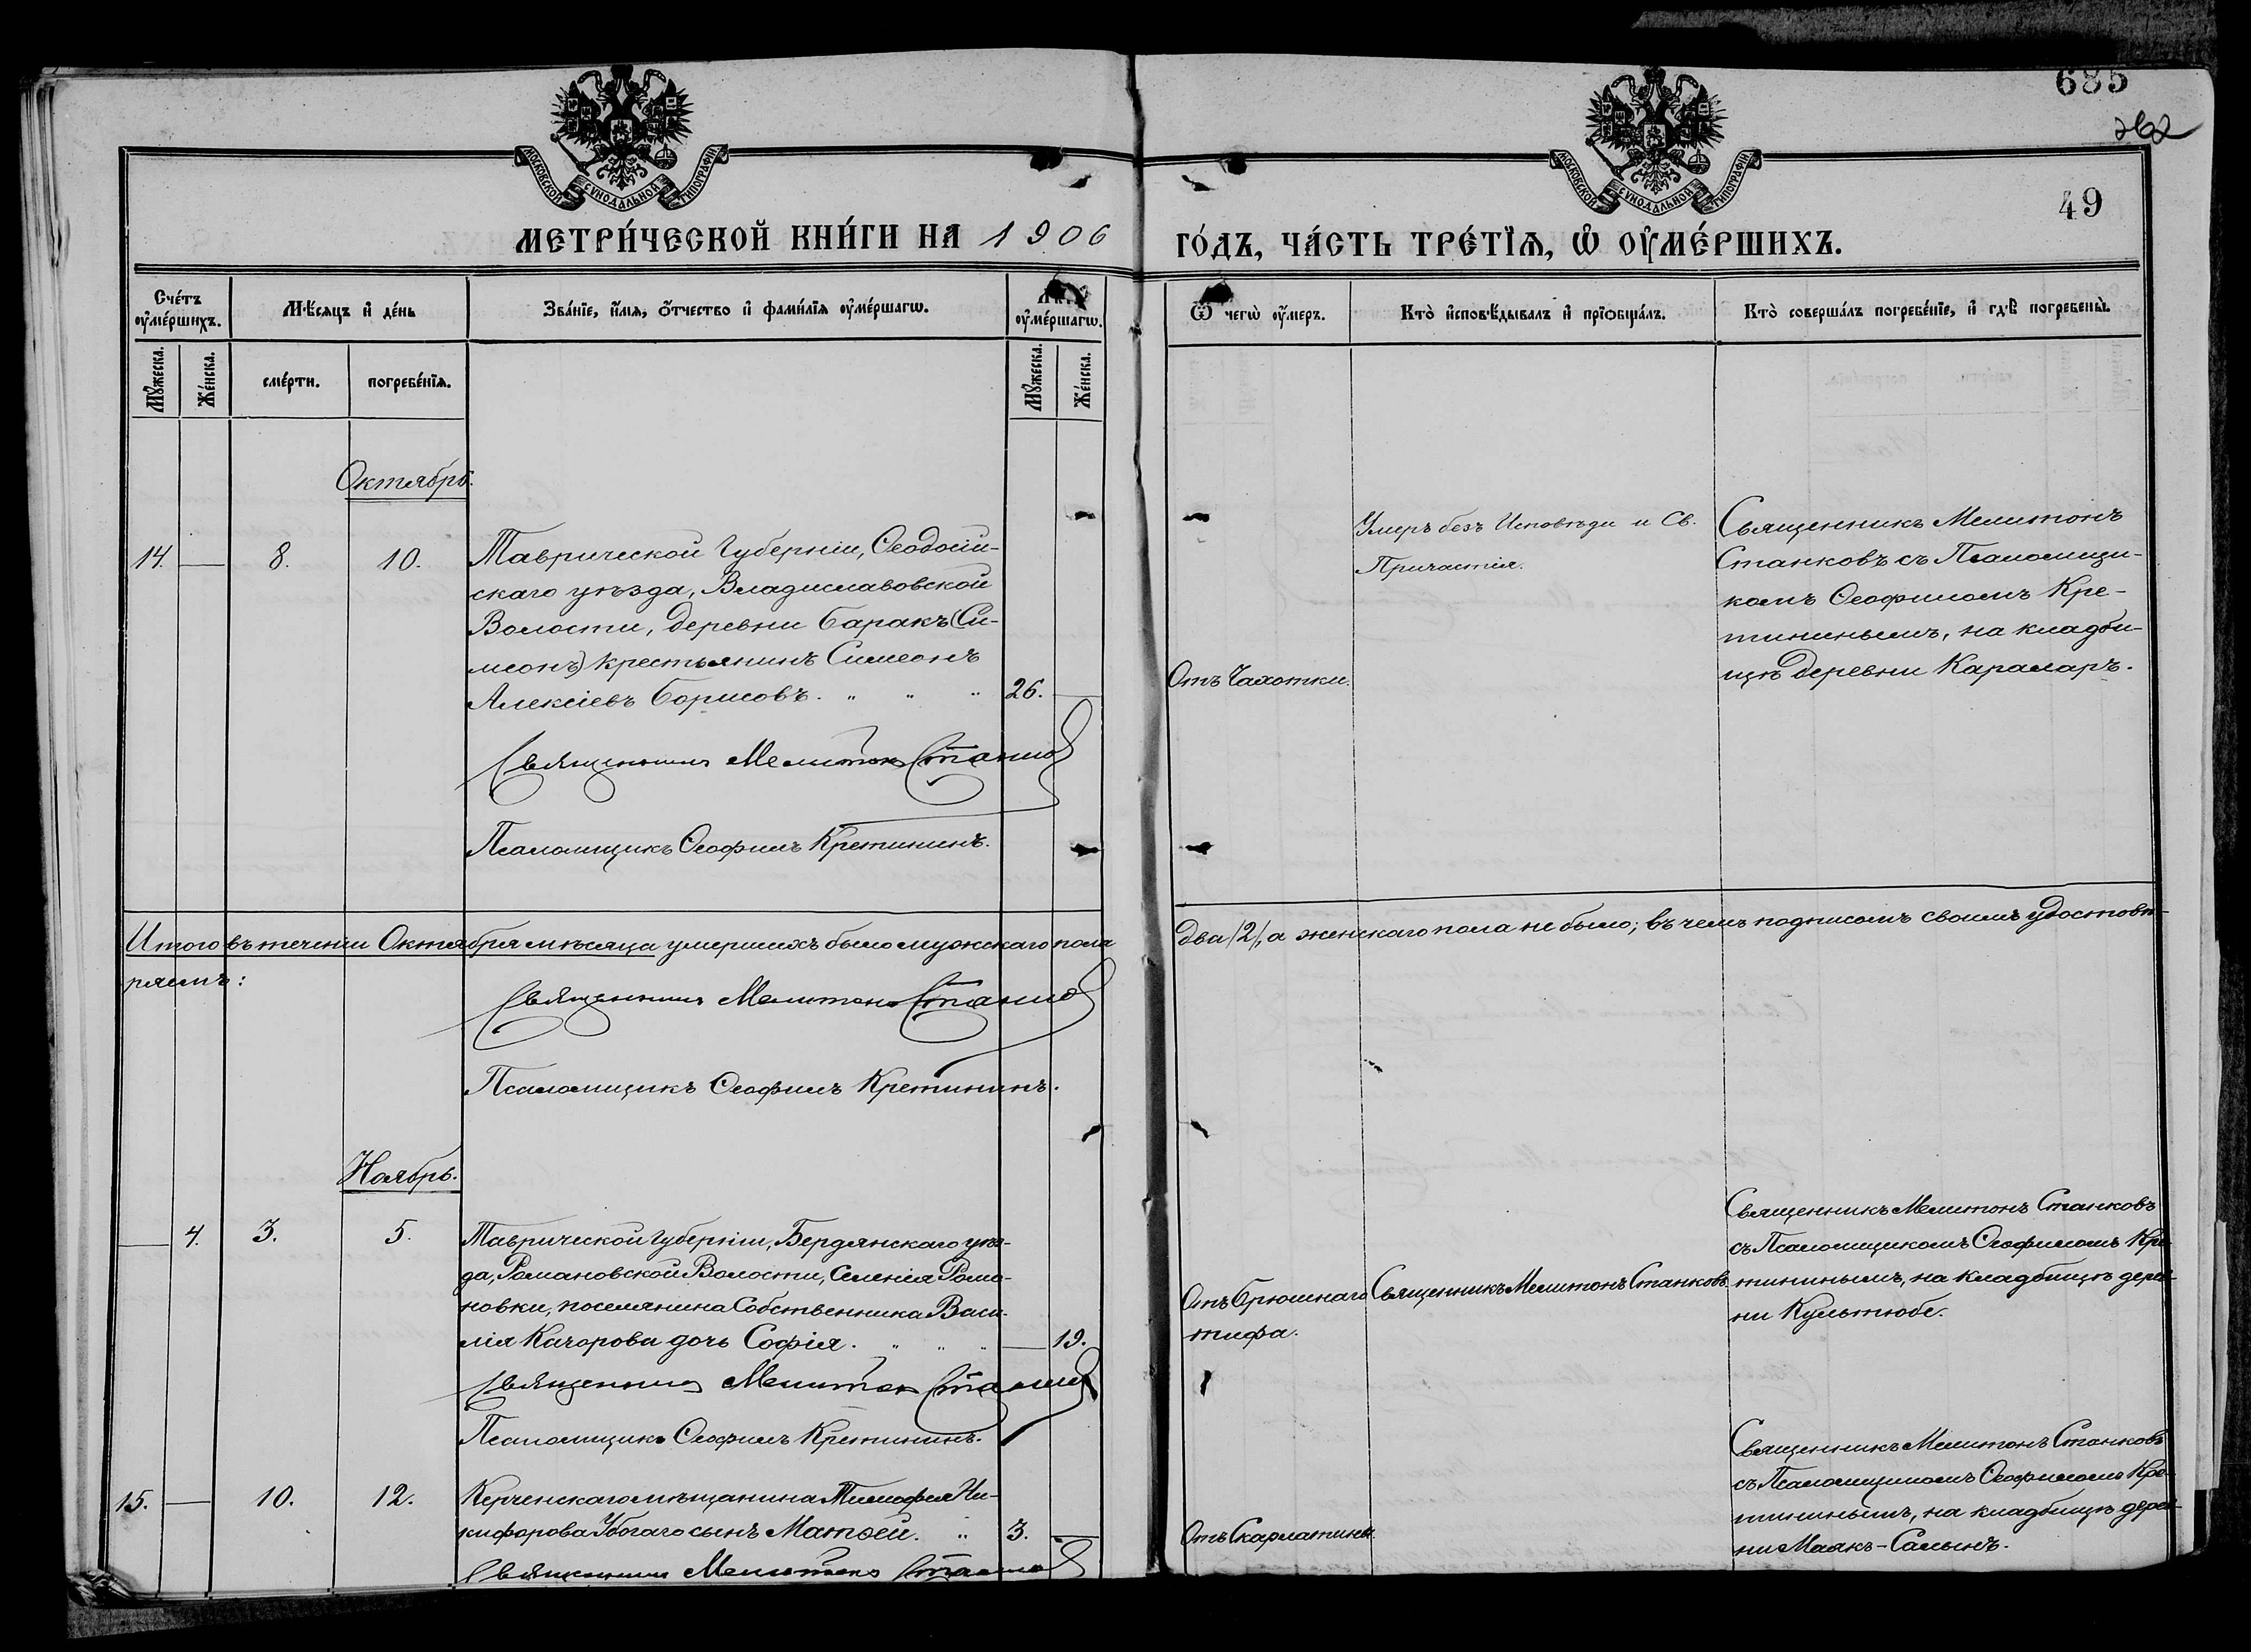 685
262
49
МОСКОВСКОЙ СѴНОДАЛЬНОЙ ТИПОГРАФІИ
МОСКОВСКОЙ СѴНОДАЛЬНОЙ ТИПОГРАФІИ
МЕТРИ́ЧЕСКОЙ КНИ́ГИ НА 1906
ГО́ДЪ, ЧА́СТЬ ТРЕ́ТЇѦ, Ѡ ОУ҆МЕ́РШИХЪ.
Сче́тъ оу҆ме́ршихъ.
Мѣ́сяцъ и҆ де́нь
Зва́нїе, и҆́мя, ѻ҆́тчество и҆ фами́лїя оу҆ме́ршагѡ.
оу҆ме́ршагѡ.
Ѿ чегѡ̀ оу҆́меръ.
Кто̀ и҆сповѣ́дывалъ и҆ прїѡбща́лъ.
Кто̀ соверша́лъ погребе́нїе, и҆ гдѣ̀ погребены̀.
Мꙋ́жеска.
Же́нска.
сме́рти.
погребе́нїѧ.
Мꙋ́жеска.
Же́нска.
Октябрь.
14. — 8. 10.
Таврической Губерніи, Ѳеодосій-
скаго уѣзда, Владиславовской
Волости, деревни Баракъ (Си-
меонъ) крестьянинъ Симеонъ
Алексіевъ Борисовъ. " " " 26. —
Отъ Чахотки.
Умеръ безъ Исповѣди и Св.
Причастія.
Священникъ Мелитонъ
Станковъ съ Псаломщи-
комъ Ѳеофиломъ Кре-
тининымъ, на кладби-
щѣ деревни Караларъ.
Священникъ Мелитонъ Станковъ
Псаломщикъ Ѳеофилъ Кретининъ.
Итого въ теченіи Октября мѣсяца умершихъ было мужскаго пола
два /2/, а женскаго пола не было; въ чемъ подписомъ своимъ удостовѣ-
ряемъ:
Священникъ Мелитонъ Станковъ
Псаломщикъ Ѳеофилъ Кретининъ.
Ноябрь.
— 4. 3. 5.
Таврической Губерніи, Бердянскаго уѣз-
да, Романовской Волости, Селенія Рома-
новки, поселянина Собственника Васи-
лія Качорова дочь Софія. " " " — 19.
Отъ Брюшнаго
тифа.
Священникъ Мелитонъ Станковъ.
Священникъ Мелитонъ Станковъ
съ Псаломщикомъ Ѳеофиломъ Кре-
тининымъ, на кладбищѣ дерев-
ни Культюбе.
Священникъ Мелитонъ Станковъ
Псаломщикъ Ѳеофилъ Кретининъ.
15. — 10. 12.
Керченскаго мѣщанина Тимофея Ни-
кифорова Убогаго сынъ Матѳей. " 3. —
Отъ Скарлатины.
Священникъ Мелитонъ Станковъ
съ Псаломщикомъ Ѳеофиломъ Кре-
тининымъ, на кладбищѣ дерев-
ни Маякъ-Салынъ.
Священникъ Мелитонъ Станковъ